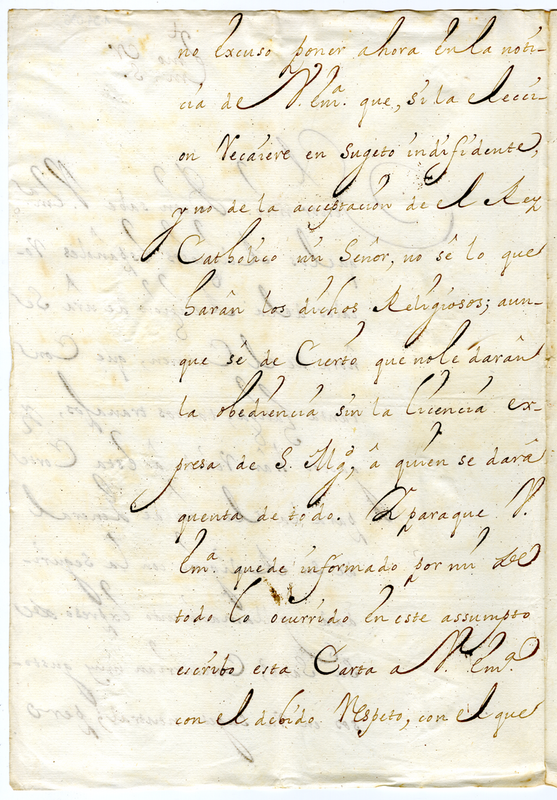 no excuso poner ahora en la noti-
cia de V. Em.ª que, si la elecci-
on recaiere en sugeto indifidente,
y no de la acceptacion de el Rey
Catholico mi Señor, no sê lo que
harân los dichos Religiosos; aun-
que sê de Cierto que no le darân
la obediencia sin la licencia ex-
presa de S. Mg.ᵈ, â quien se darâ
quenta de todo. para que V.
Em.ª quede informado por mi de
todo lo ocurrido en este assumpto
escribo esta Carta a V. Em.ª
con el debido respeto, con el que